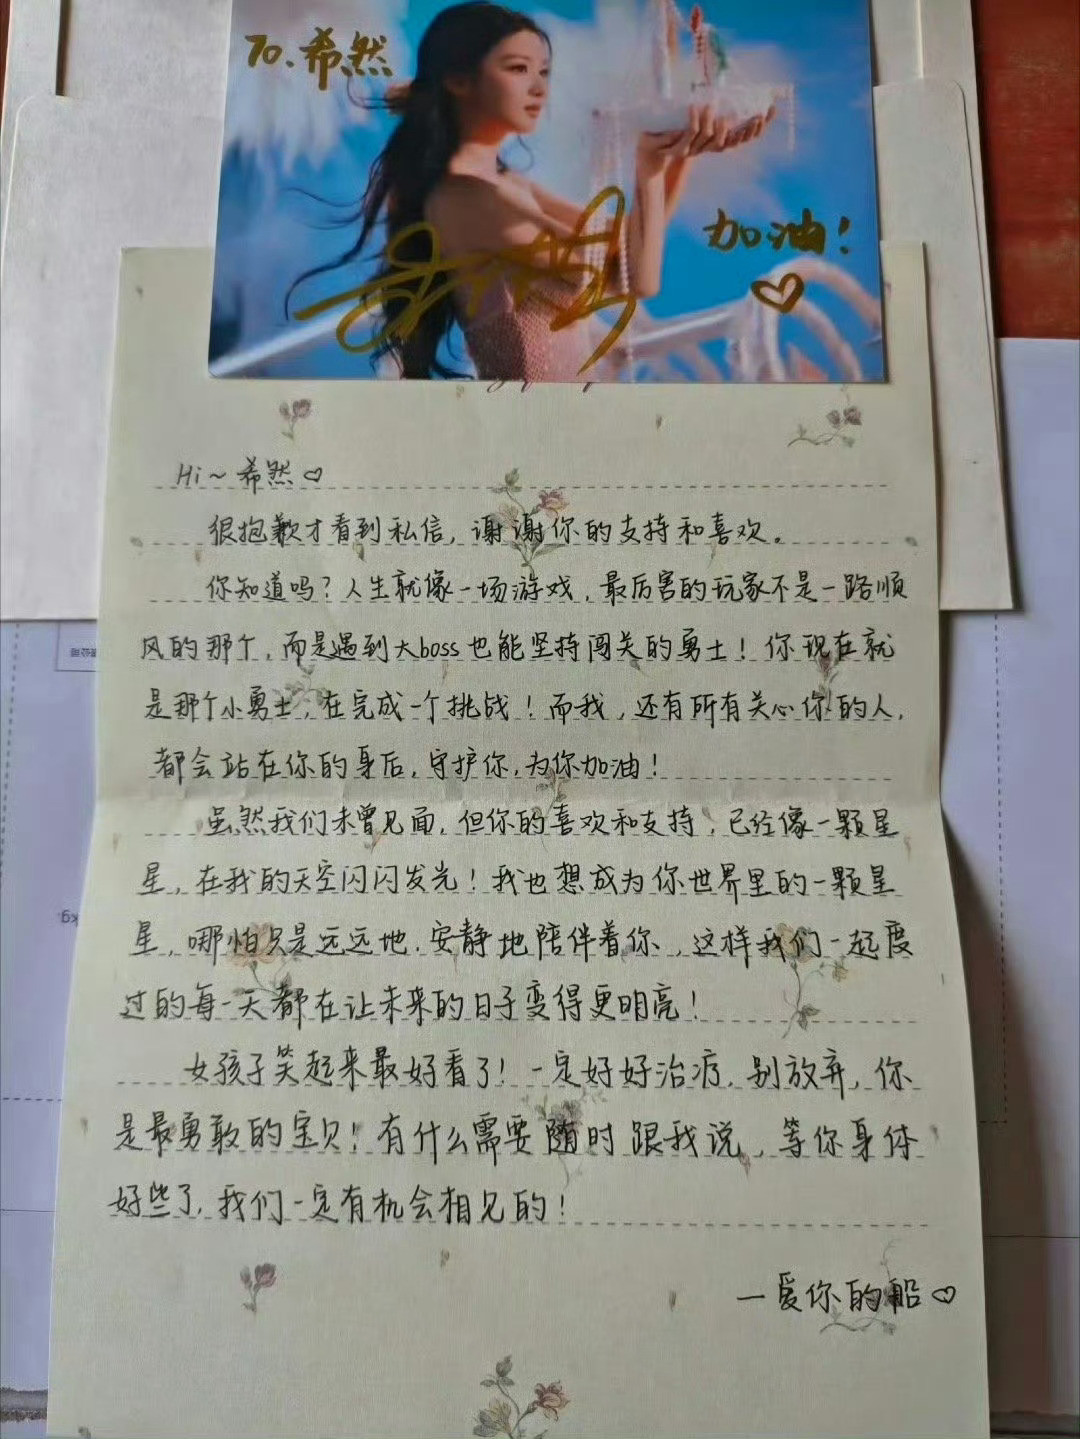 To.希然
加油!
Hi~希然♡
很抱歉才看到私信,谢谢你的支持和喜欢。
你知道吗?人生就像一场游戏,最厉害的玩家不是一路顺
风的那个,而是遇到大boss也能坚持闯关的勇士!你现在就
是那个小勇士,在完成一个挑战!而我,还有所有关心你的人,
都会站在你的身后,守护你,为你加油!
虽然我们未曾见面,但你的喜欢和支持,已经像一颗星
星,在我的天空闪闪发光!我也想成为你世界里的一颗星
星,哪怕只是远远地,安静地陪伴着你,这样我们一起度
过的每一天都在让未来的日子变得更明亮!
女孩子笑起来最好看了!一定好好治疗,别放弃,你
是最勇敢的宝贝!有什么需要随时跟我说,等你身体
好些了,我们一定有机会相见的!
—爱你的船♡
kg